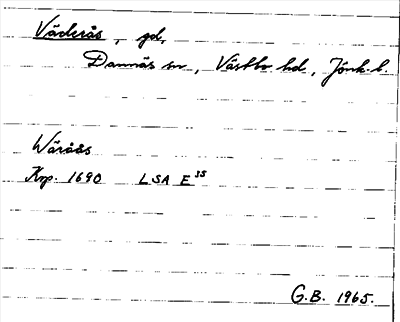 Väderås, gd,
Dannäs sn, Västbo hd, Jönk. l.
Wäråås
Krp. 1690 LSA E 35
G.B. 1965.